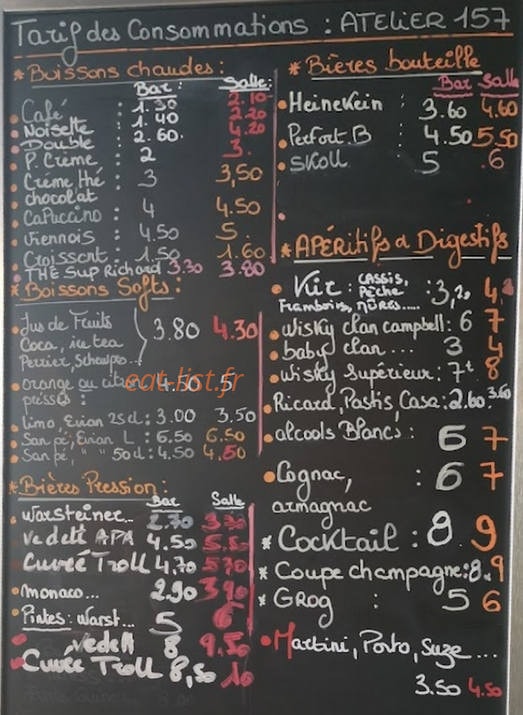 Tarif des Consommations : ATELIER 157
* Boissons chaudes :
Bar : Salle :
• Café : 1.30 2.10
• Noisette : 1.40 2.20
• Double : 2.60 4.20
• P. Crème : 2 3.
• Crème thé chocolat : 3 3,50
• CaPuccino : 4 4.50
• Viennois : 4.50 5.
• Croissant : 1.50 1.60
• THE SUP Richard 3.30 3.80
* Boissons Softs :
• Jus de Fruits 3.80 4.30
Coca, ice tea
Perrier, Schweppes...
• orange ou citron 4.50 5
pressés :
• Limo, Evian 25cl : 3.00 3.50
• San pé, Evian L : 6.50 6.50
• San pé, " " 50cl : 4.50 4,50
* Bières Pression :
Bar Salle
• Warsteiner... 2.70 3.30
Vedett APA 4.50 5.50
Cuvée Troll 4.70 5.70
• monaco... 2.90 3.90
• Pintes : Warst... 5 6
Vedett 8 9.50
Cuvée Troll 8,50 10
* Bières bouteille
Bar Salle
• Heineken : 3.60 4.60
• Perfort.B : 4.50 5.50
• SKoll 5 .6
* APÉRitifs & Digestifs
• Kir : CASSIS, Pêche : 3,20
Framboise, MÛRES.....
• Wisky clan campbell : 6 7
• baby clan.... 3 4
• Wisky Supérieur : 7€ 8
• Ricard, Pastis, Casa : 2.60 3.60
• alcools Blancs : 6 7
• Cognac, : 6 7
armagnac
* Cocktail : 8 9
* Coupe champagne : 8. 9
* GROG : 5 6
• Martini, Porto, Suze...
3.50 4.50
eat-list.fr